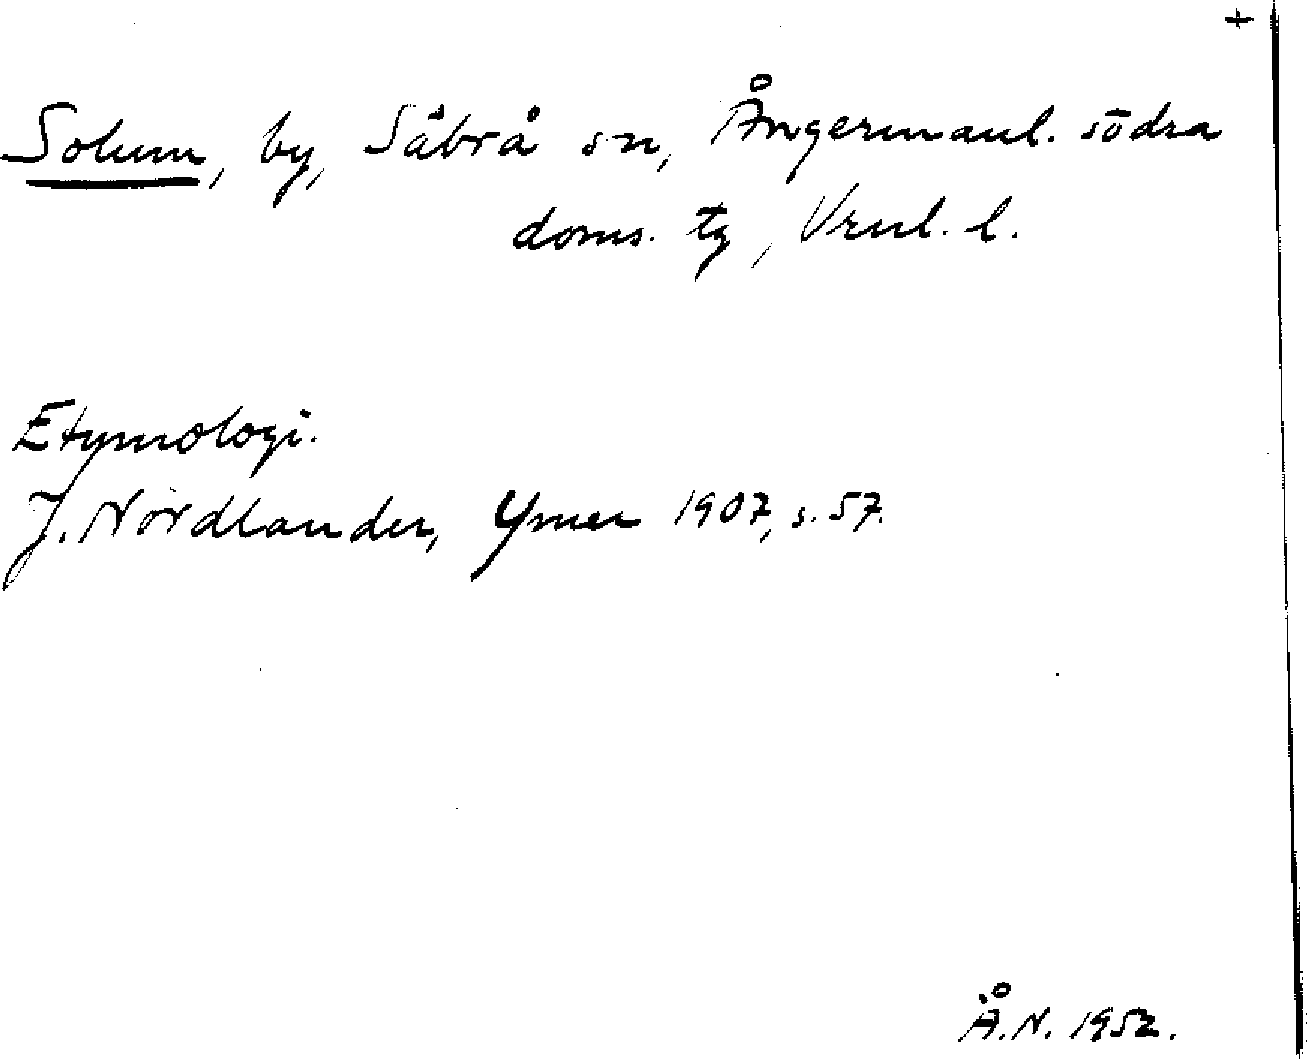 +
Solum, by, Säbrå sn, Ångermanl. södra
doms. tg, Vrnl. l.
Etymologi.
J. Nordlander, Ymer 1907, s. 57.
Å.N. 1952.